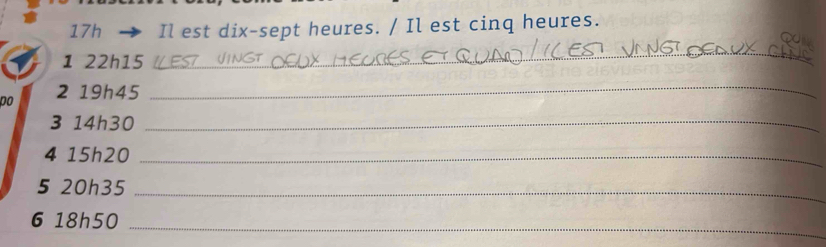 17h → Il est dix-sept heures. / Il est cinq heures.
1 22h15 IL EST VINGT DEUX HEURES ET QUAD / IL EST VINGT DEUX
2 19h45
3 14h30
po
4 15h20
5 20h35
6 18h50